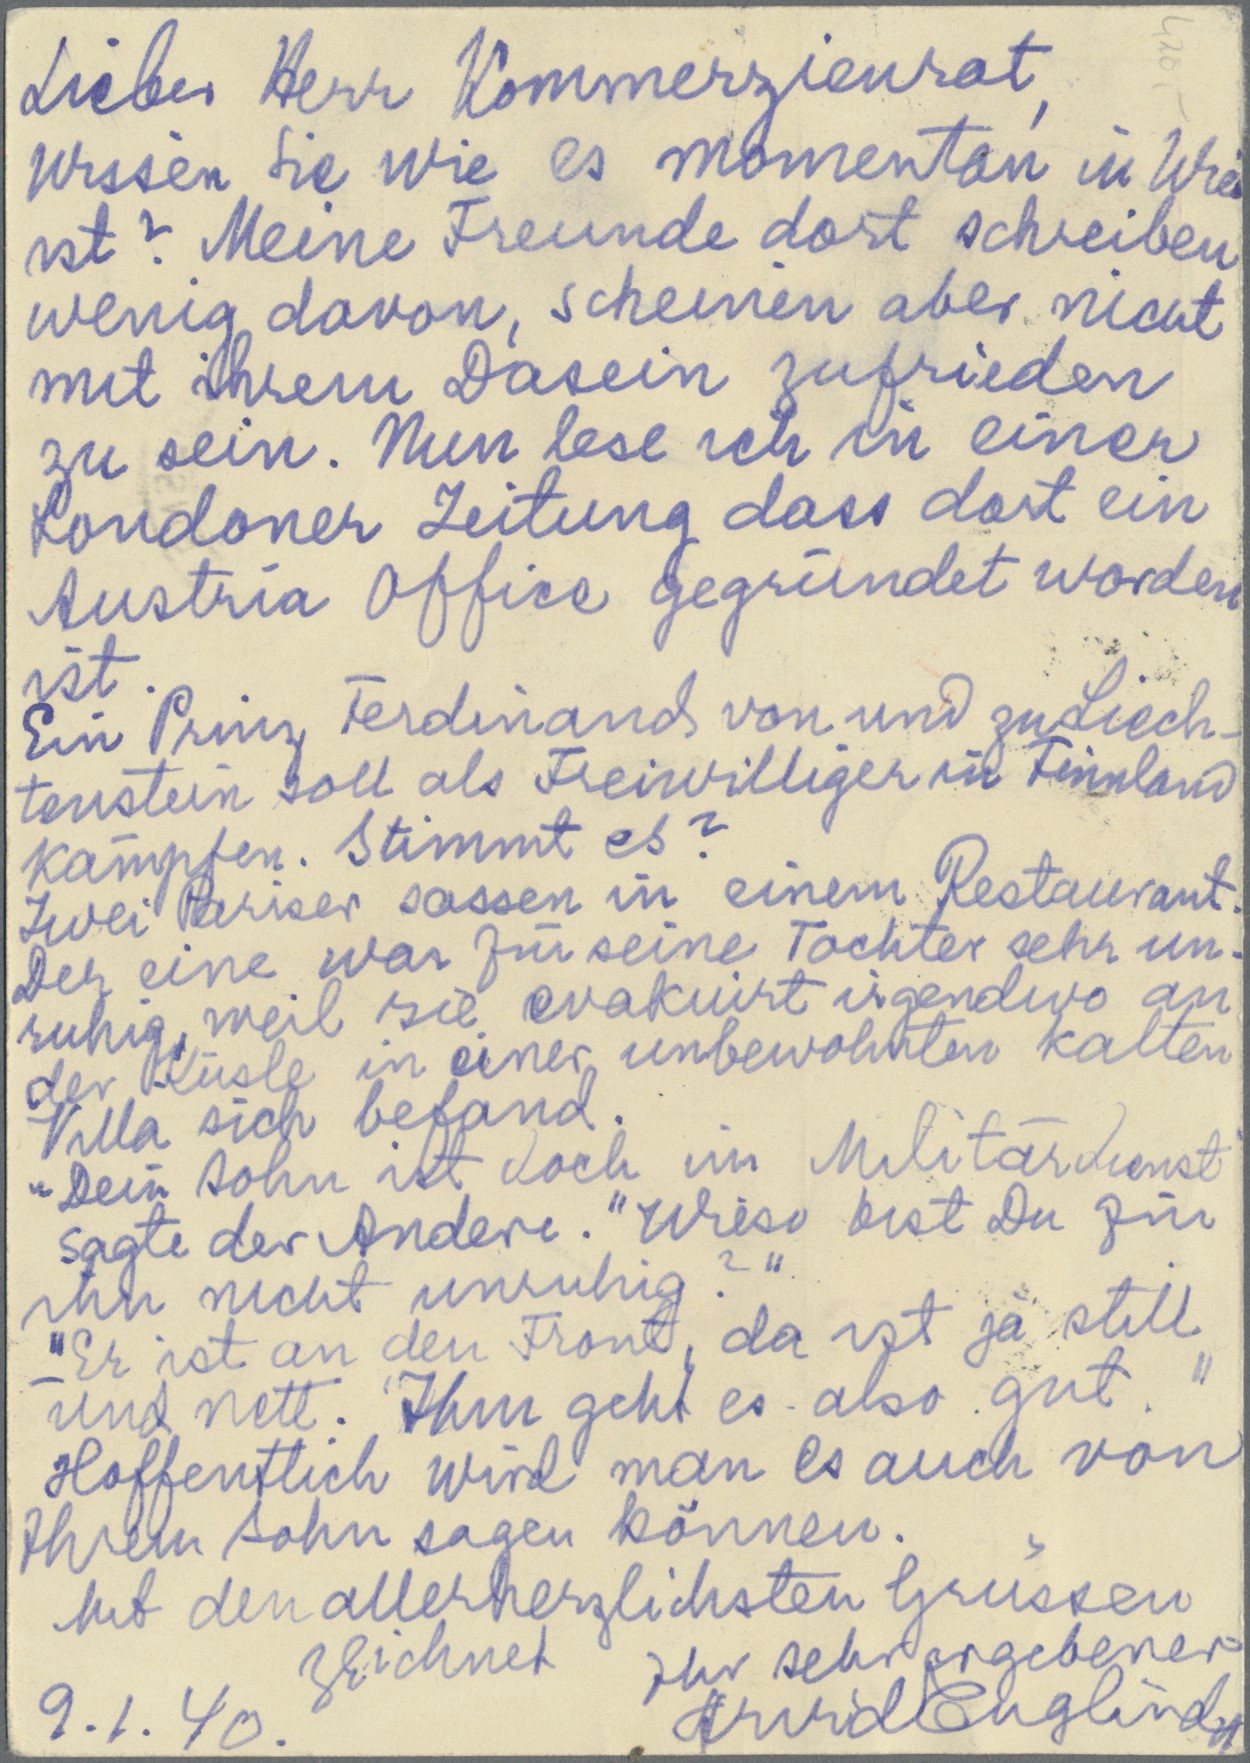 Lieber Herr Kommerzienrat,
Wissen Sie wie es momentan in Wien
ist? Meine Freunde dort schreiben
wenig davon, scheinen aber nicht
mit ihrem Dasein zufrieden
zu sein. Nun lese ich in einer
Londoner Zeitung dass dort ein
Austria Office gegründet worden
ist.
Ein Prinz Ferdinand von und zu Liech-
tenstein soll als Freiwilliger in Finnland
kämpfen. Stimmt es?
Zwei Pariser sassen in einem Restaurant.
Der eine war für seine Tochter sehr un-
ruhig, weil sie evakuirt irgendwo an
der Küste in einer unbewohnten kalten
Villa sich befand.
"Dein Sohn ist doch im Militärdienst"
sagte der Andere. "Wieso bist Du für
ihn nicht unruhig?"
"Er ist an den Front, da ist ja still
und nett. Ihm geht es also gut."
Hoffentlich wird man es auch von
Ihrem Sohn sagen können.
Mit den allerherzlichsten Grüssen
zeichnet Ihr sehr ergebener
9.1.40. Arvid Engliind